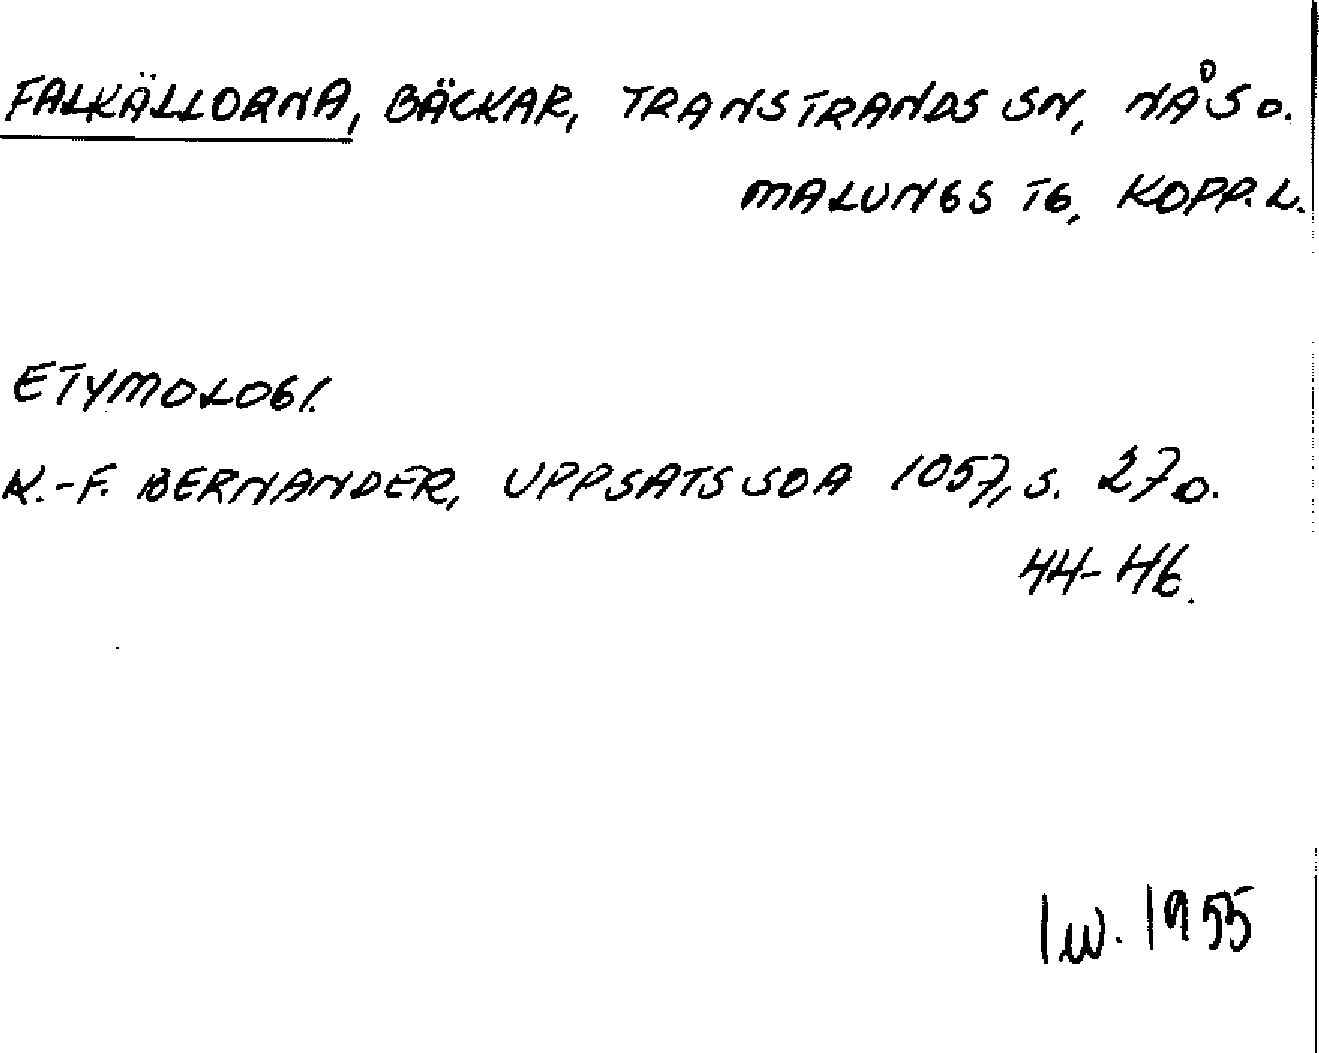 FALKÄLLORNA, BÄCKAR, TRANSTRANDS SN, NÅS O.
MALUNGS TG, KOPP. L.
ETYMOLOGI.
K.-F. BERNANDER, UPPSATS SOA 1057, S. 27 O.
44-46.
Iw. 1955